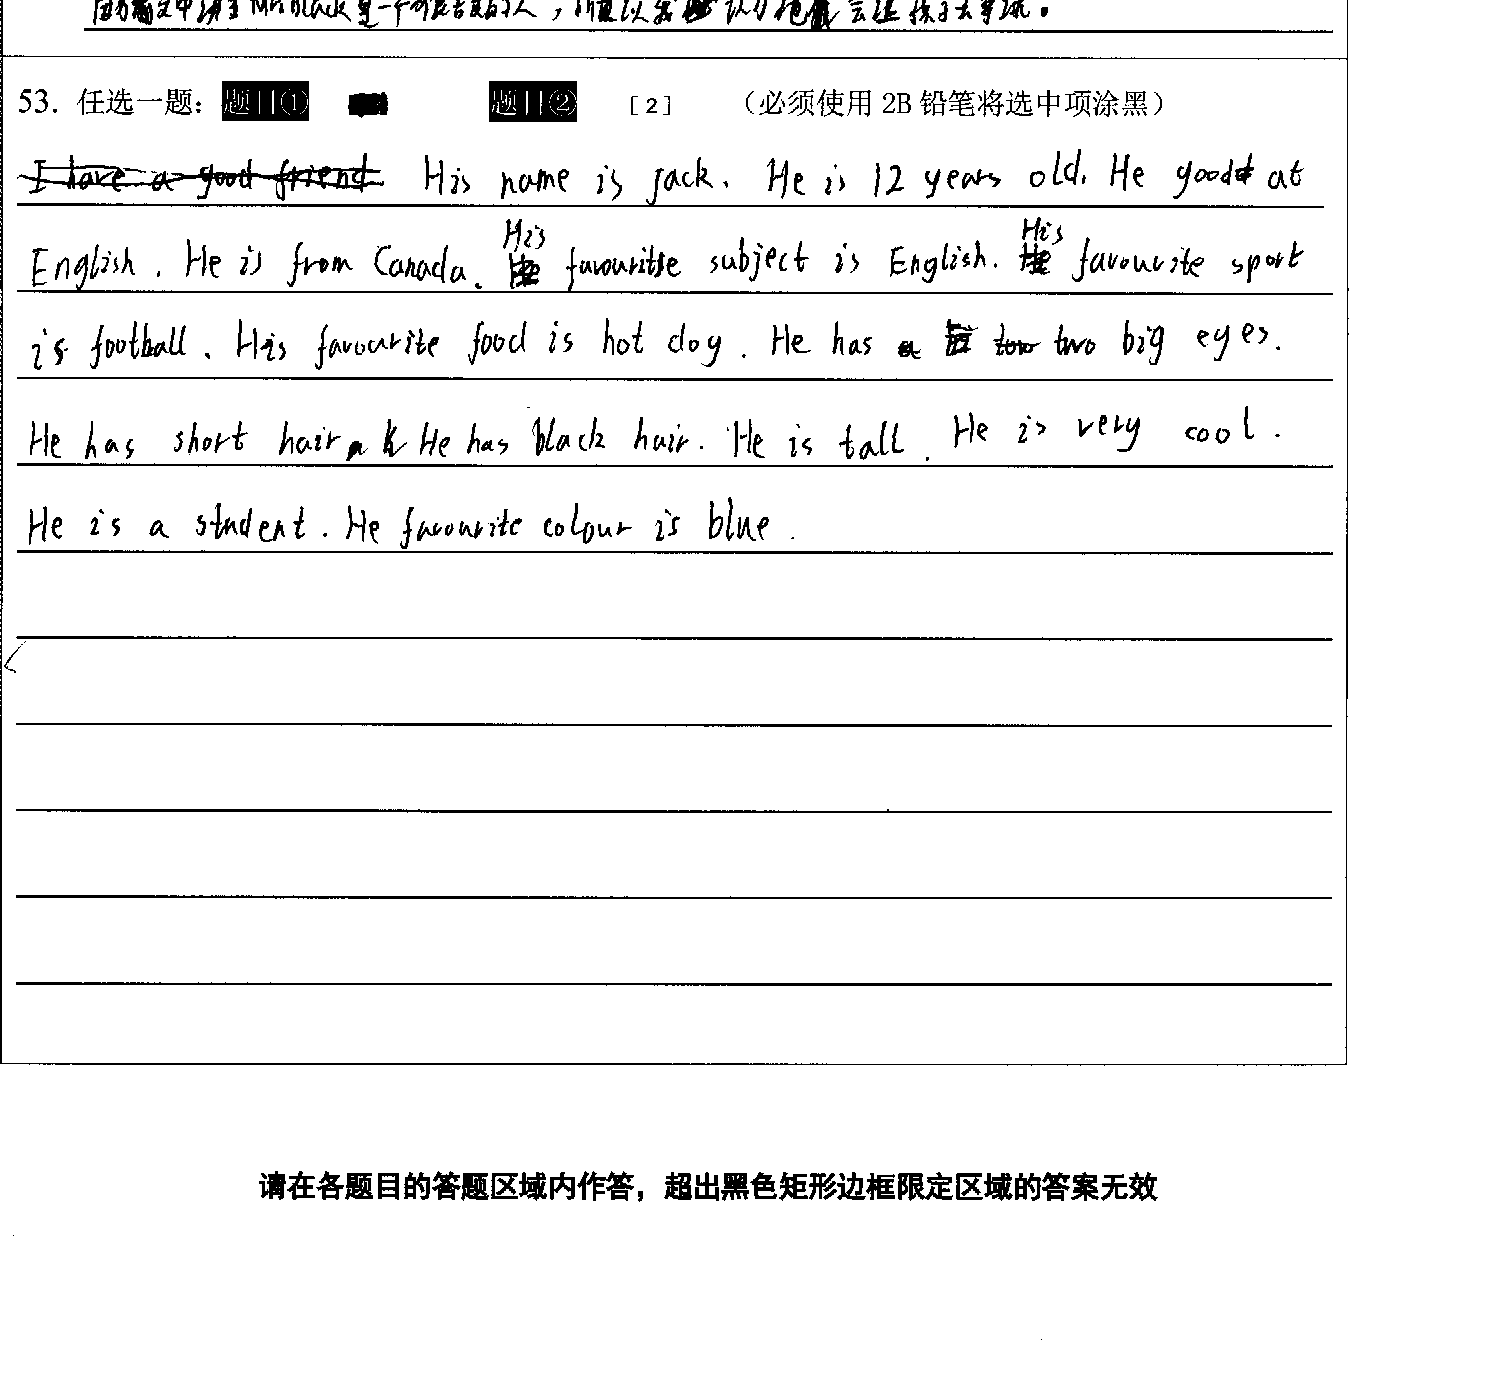 53. 任选一题： 题目① 题目② [2] （必须使用 2B 铅笔将选中项涂黑）
I have a good friend His name is Jack. He is 12 years old. He good at
English. He is from Canada. His favourite subject is English. His favourite sport
is football. His favourite food is hot dog. He has two big eyes.
He has short hair He has black hair. He is tall. He is very cool.
He is a student. He favourite colour is blue.
请在各题目的答题区域内作答，超出黑色矩形边框限定区域的答案无效